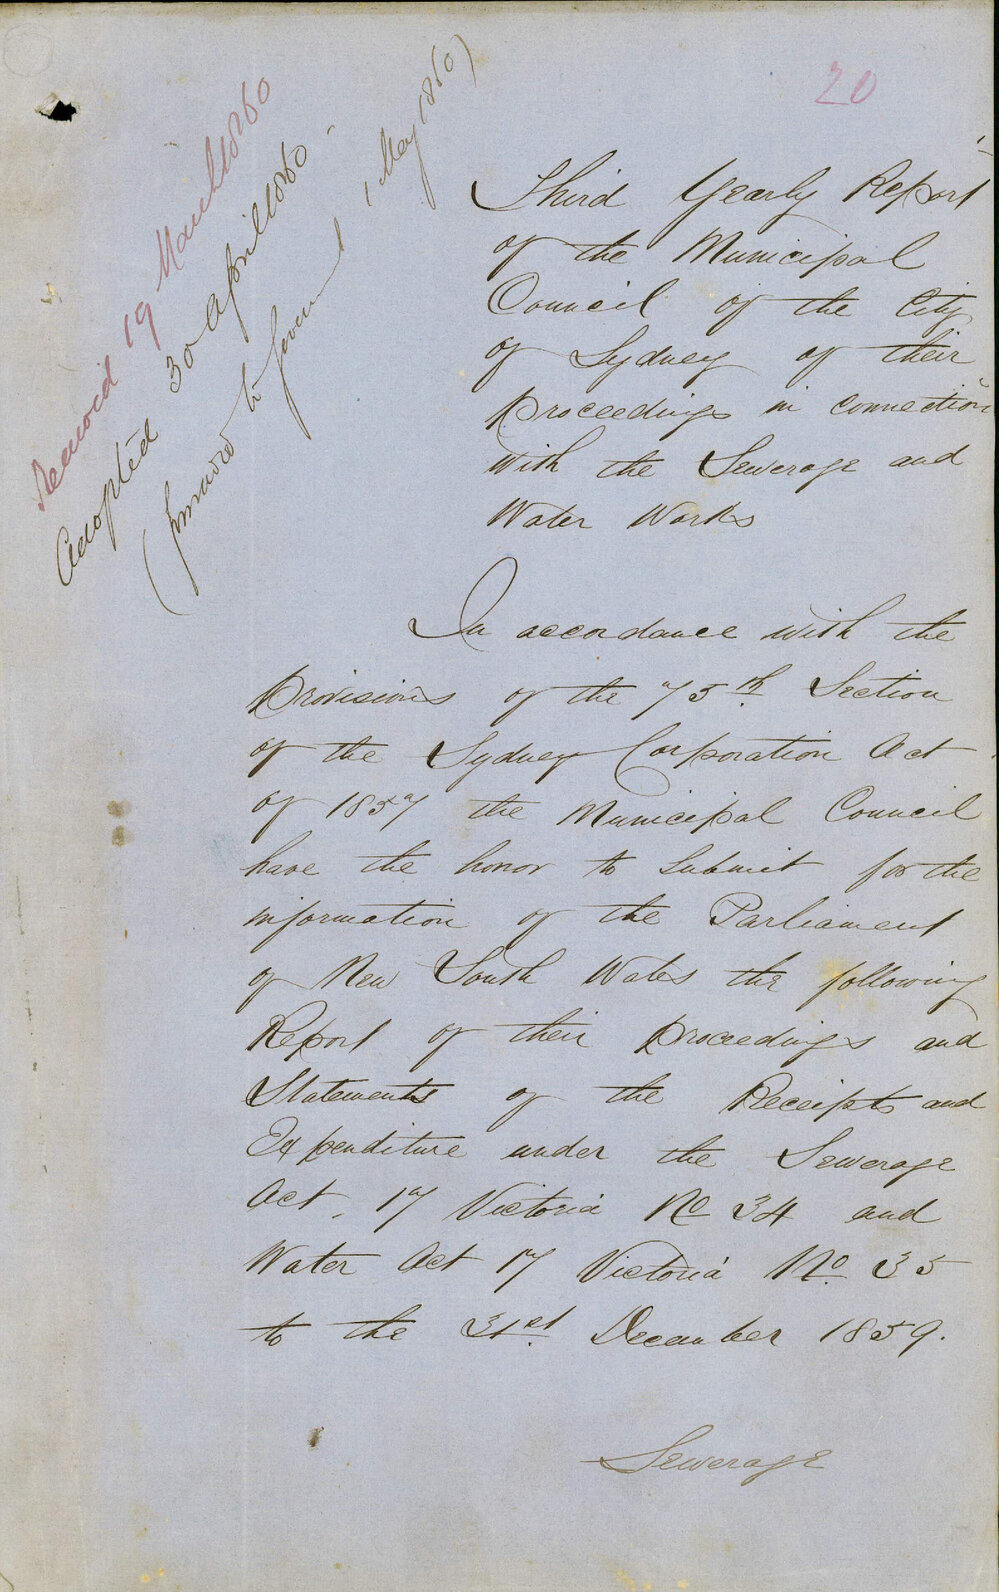 20
Received 19 March 1860
Adopted 30 April 1860
(forward to Government 1 May 1860)
Third Yearly Report
of the Municipal
Council of the City
of Sydney of their
Proceedings in connection
with the Sewerage and
Water Works
In accordance with the
Provisions of the 75th Section
of the Sydney Corporation Act
of 1857 the Municipal Council
have the honor to submit for the
information of the Parliament
of New South Wales the following
Report of their Proceedings and
Statements of the Receipts and
Expenditure under the Sewerage
Act. 17 Victoria No 34 and
Water Act 17 Victoria No. 35
to the 31st December 1859.
Sewerage